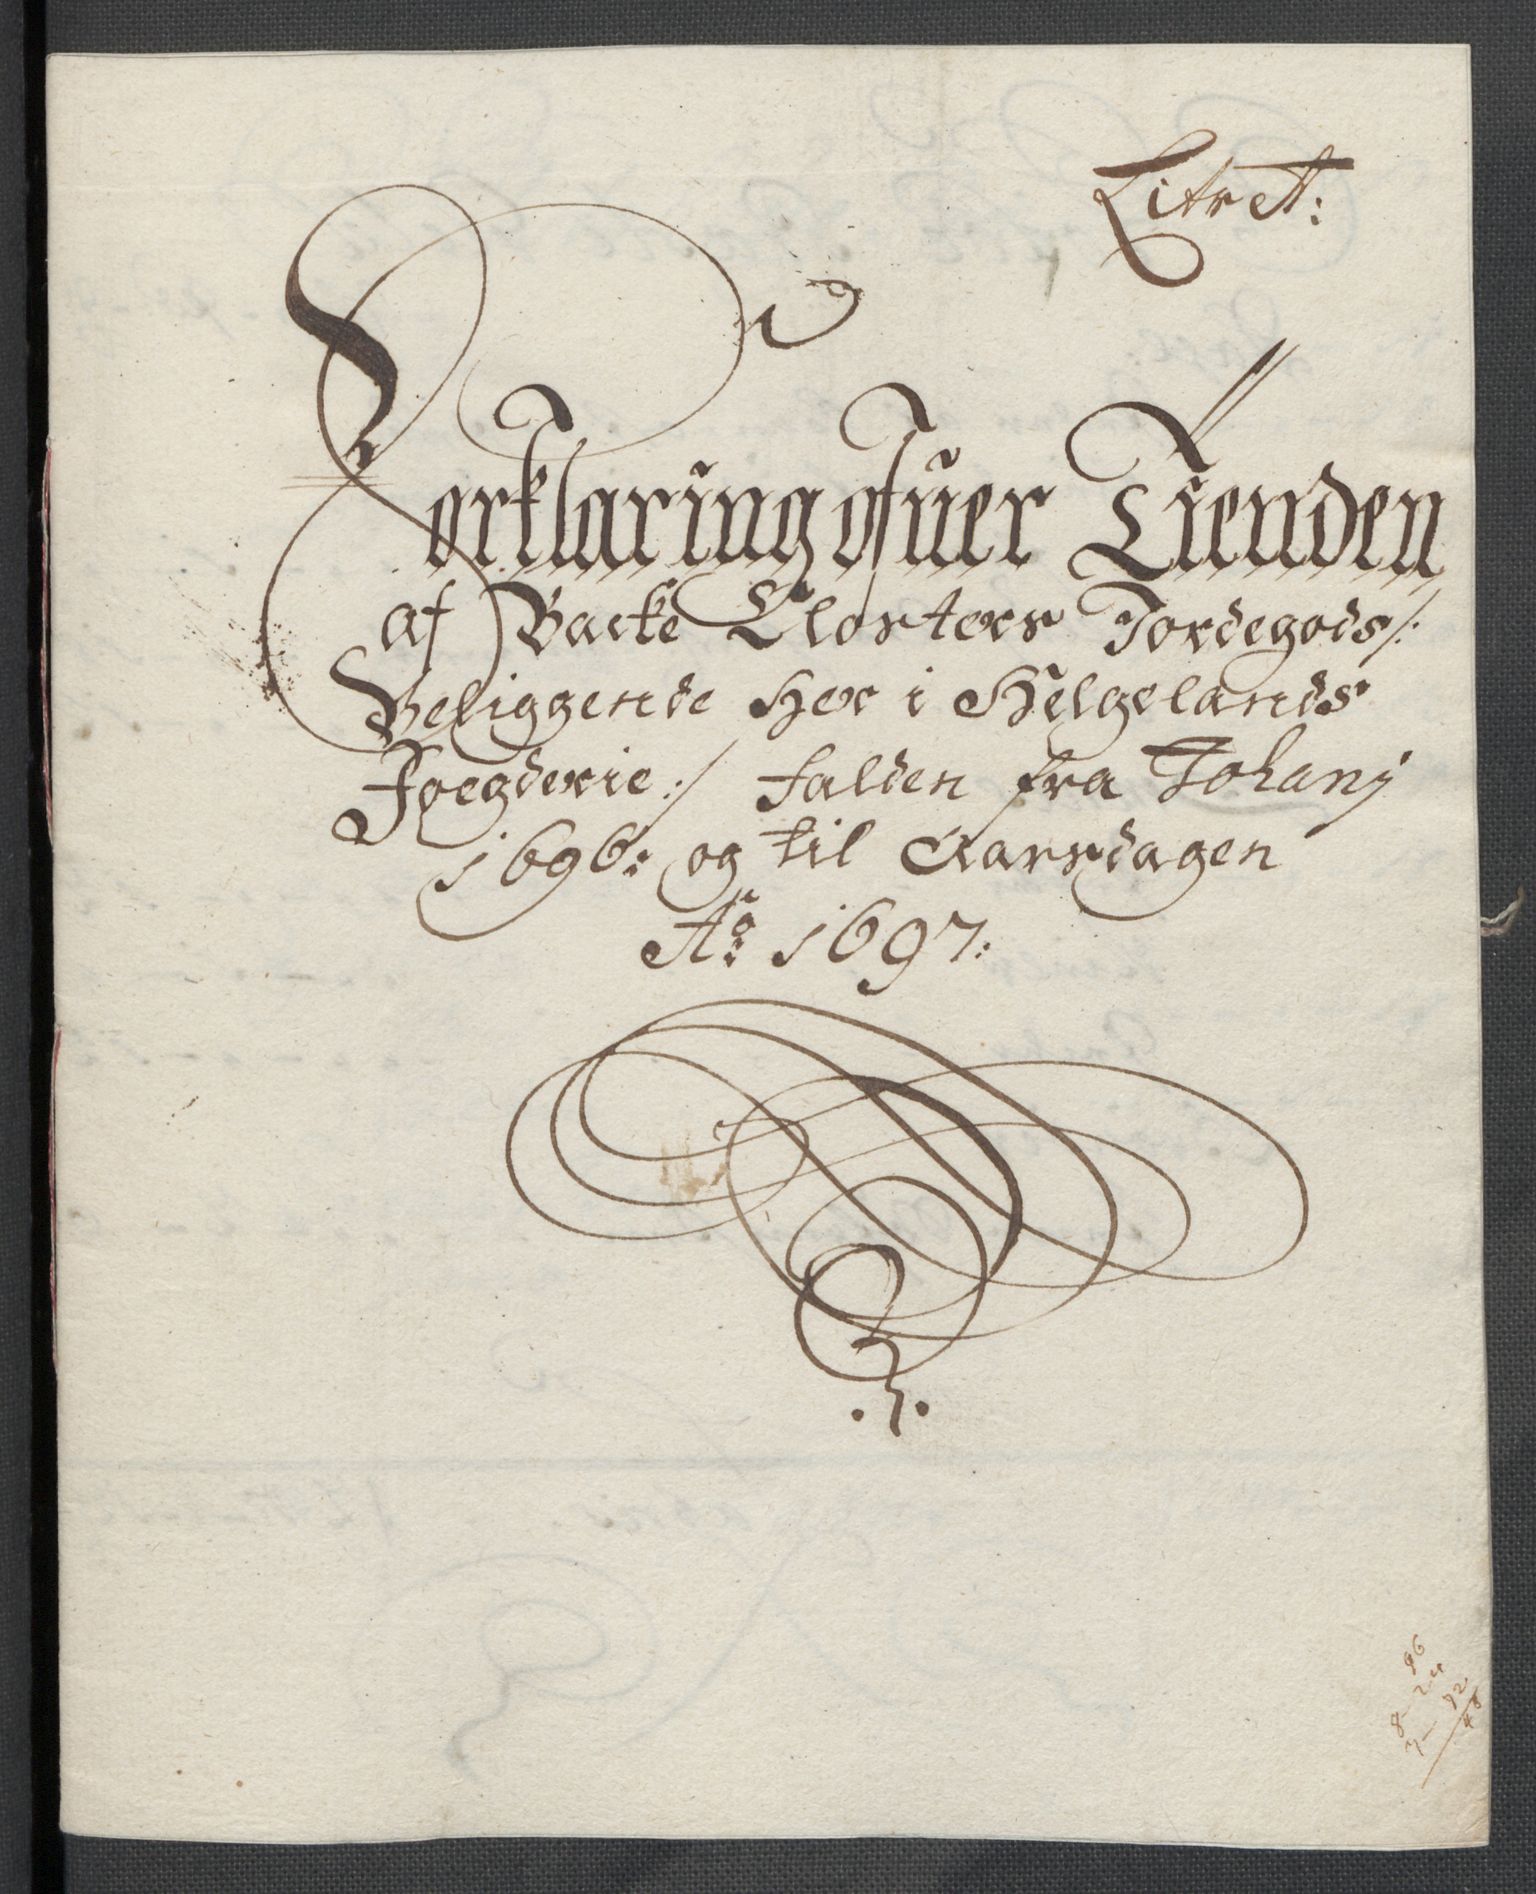 Litr A:
Forklaring ofuer Tienden
af Backe Closters Jordegods /:
Beliggende Her i Helgelands
Foegderie :/ falden fra Johanj
1696: og til Aarsdagen
Ao 1697:
96
8 - 24